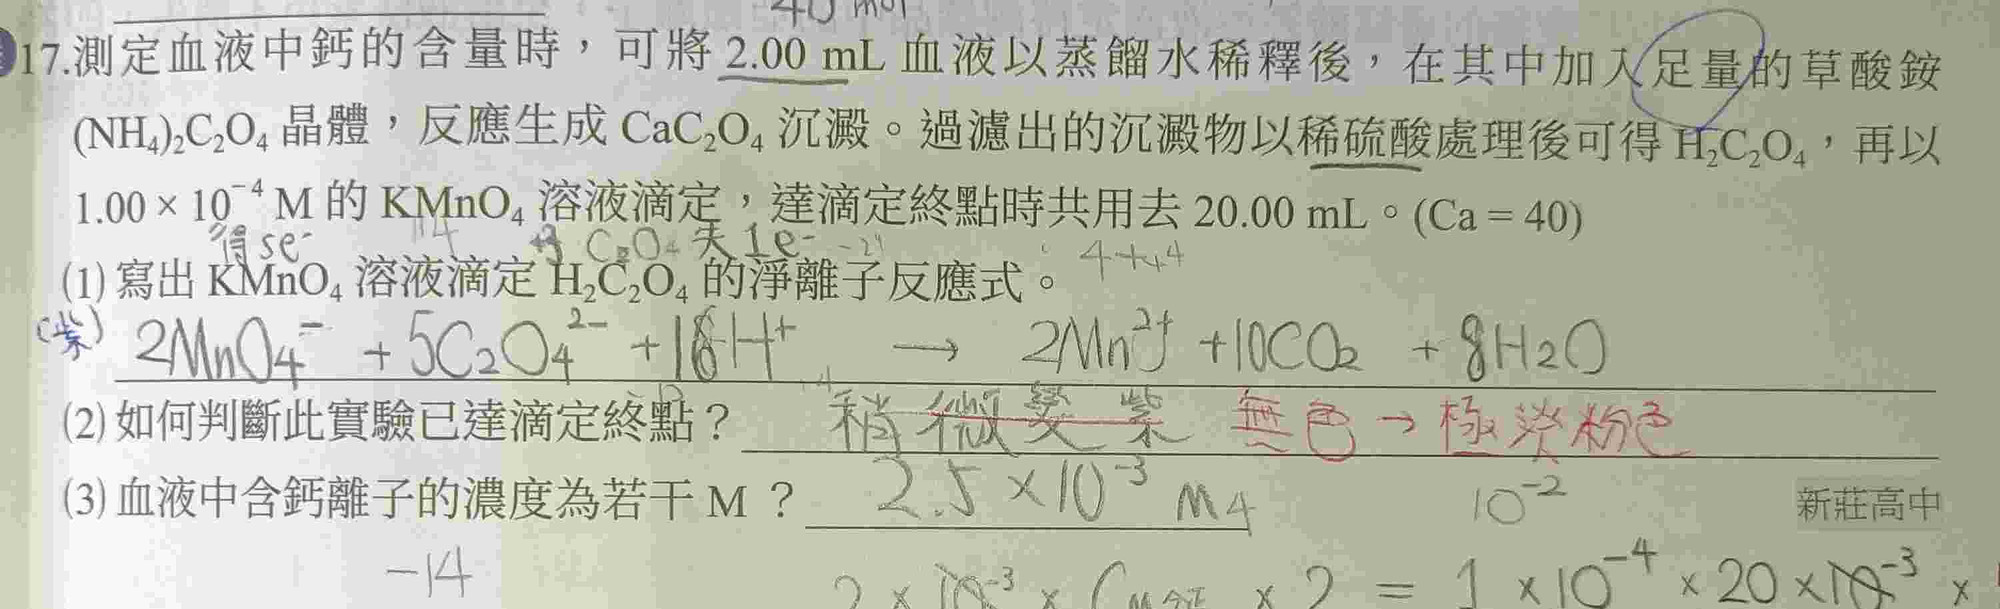 40 mol
17.測定血液中鈣的含量時，可將 2.00 mL 血液以蒸餾水稀釋後，在其中加入足量的草酸銨
(NH₄)₂C₂O₄ 晶體，反應生成 CaC₂O₄ 沉澱。過濾出的沉澱物以稀硫酸處理後可得 H₂C₂O₄，再以
1.00 × 10⁻⁴ M 的 KMnO₄ 溶液滴定，達滴定終點時共用去 20.00 mL。(Ca = 40)
得5e⁻ +3 C₂O₄ 失1e⁻ 4+4
(1) 寫出 KMnO₄ 溶液滴定 H₂C₂O₄ 的淨離子反應式。
(紫) 2MnO₄⁻ + 5C₂O₄²⁻ + 16H⁺ → 2Mn²⁺ + 10CO₂ + 8H₂O
(2) 如何判斷此實驗已達滴定終點？ 稍微變紫 無色→極淡粉色
(3) 血液中含鈣離子的濃度為若干 M ？ 2.5 × 10⁻³ M 10⁻² 新莊高中
-14
2 × 10⁻³ × × 2 = 1 × 10⁻⁴ × 20 × 10⁻³ ×